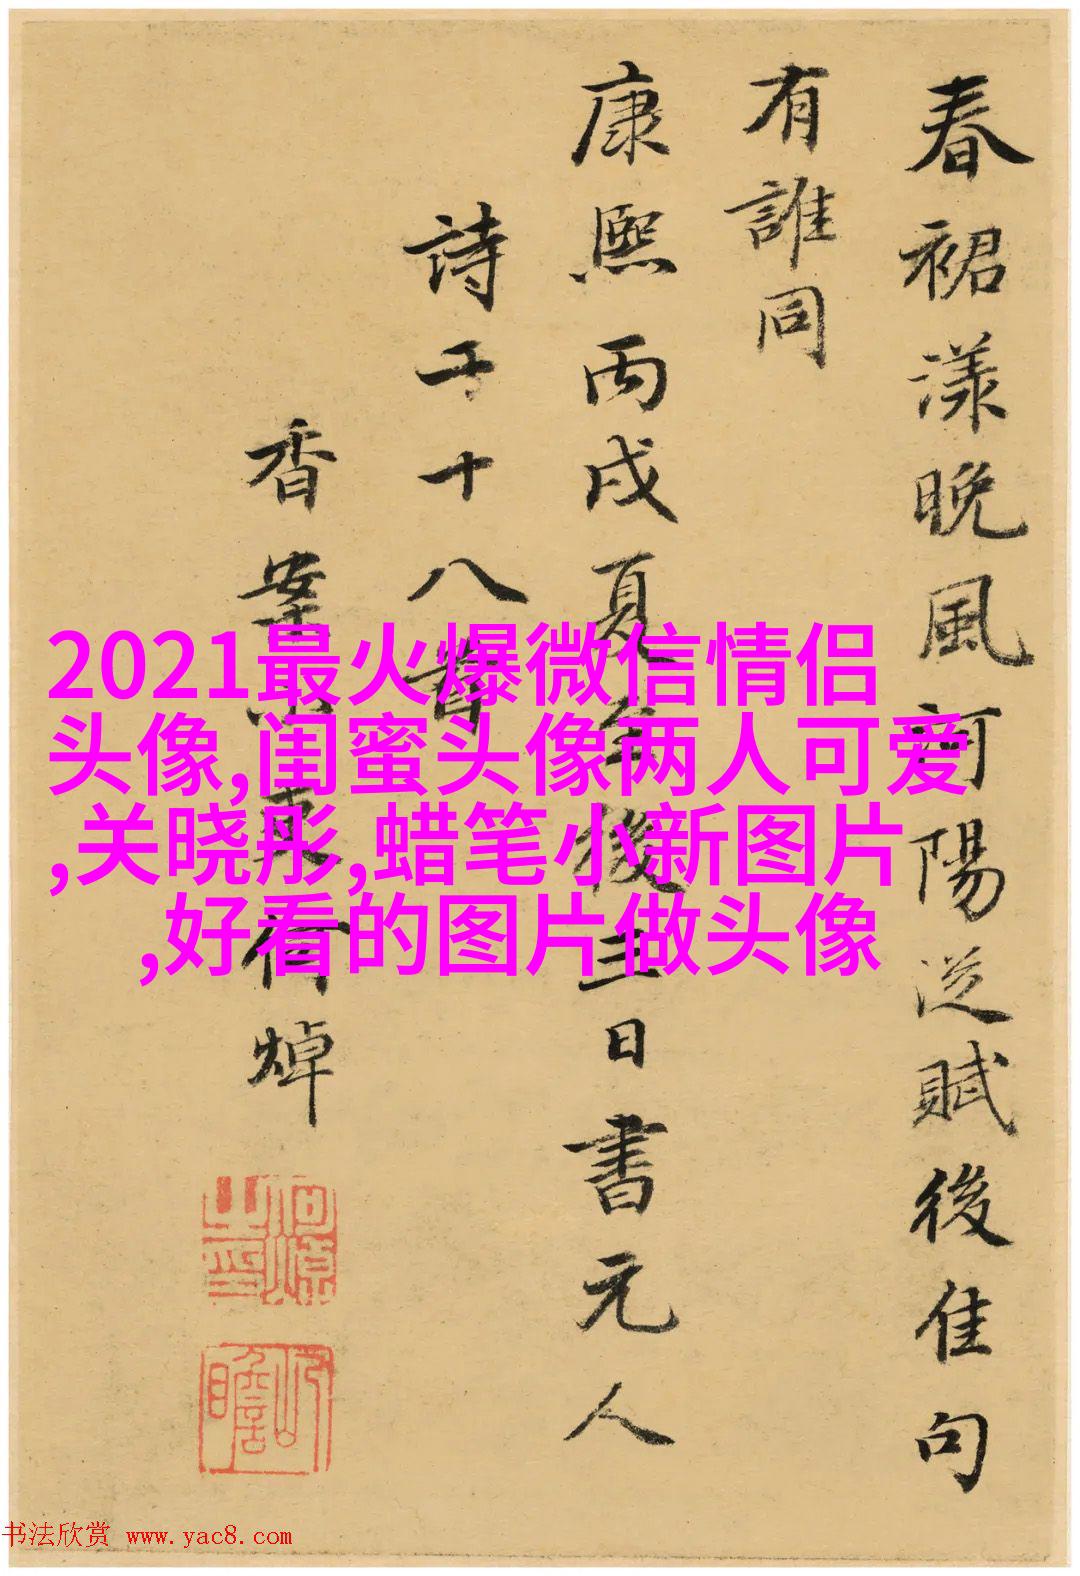 春裙漾晚風河陽從賦後佳句
有誰同
康熙丙戌夏至後三日書元人
詩于十八首
香案小吏何焯
何焯之印
屺瞻
2021最火爆微信情侣
头像,闺蜜头像两人可爱
,关晓彤,蜡笔小新图片
,好看的图片做头像
书法欣赏 www.yac8.com